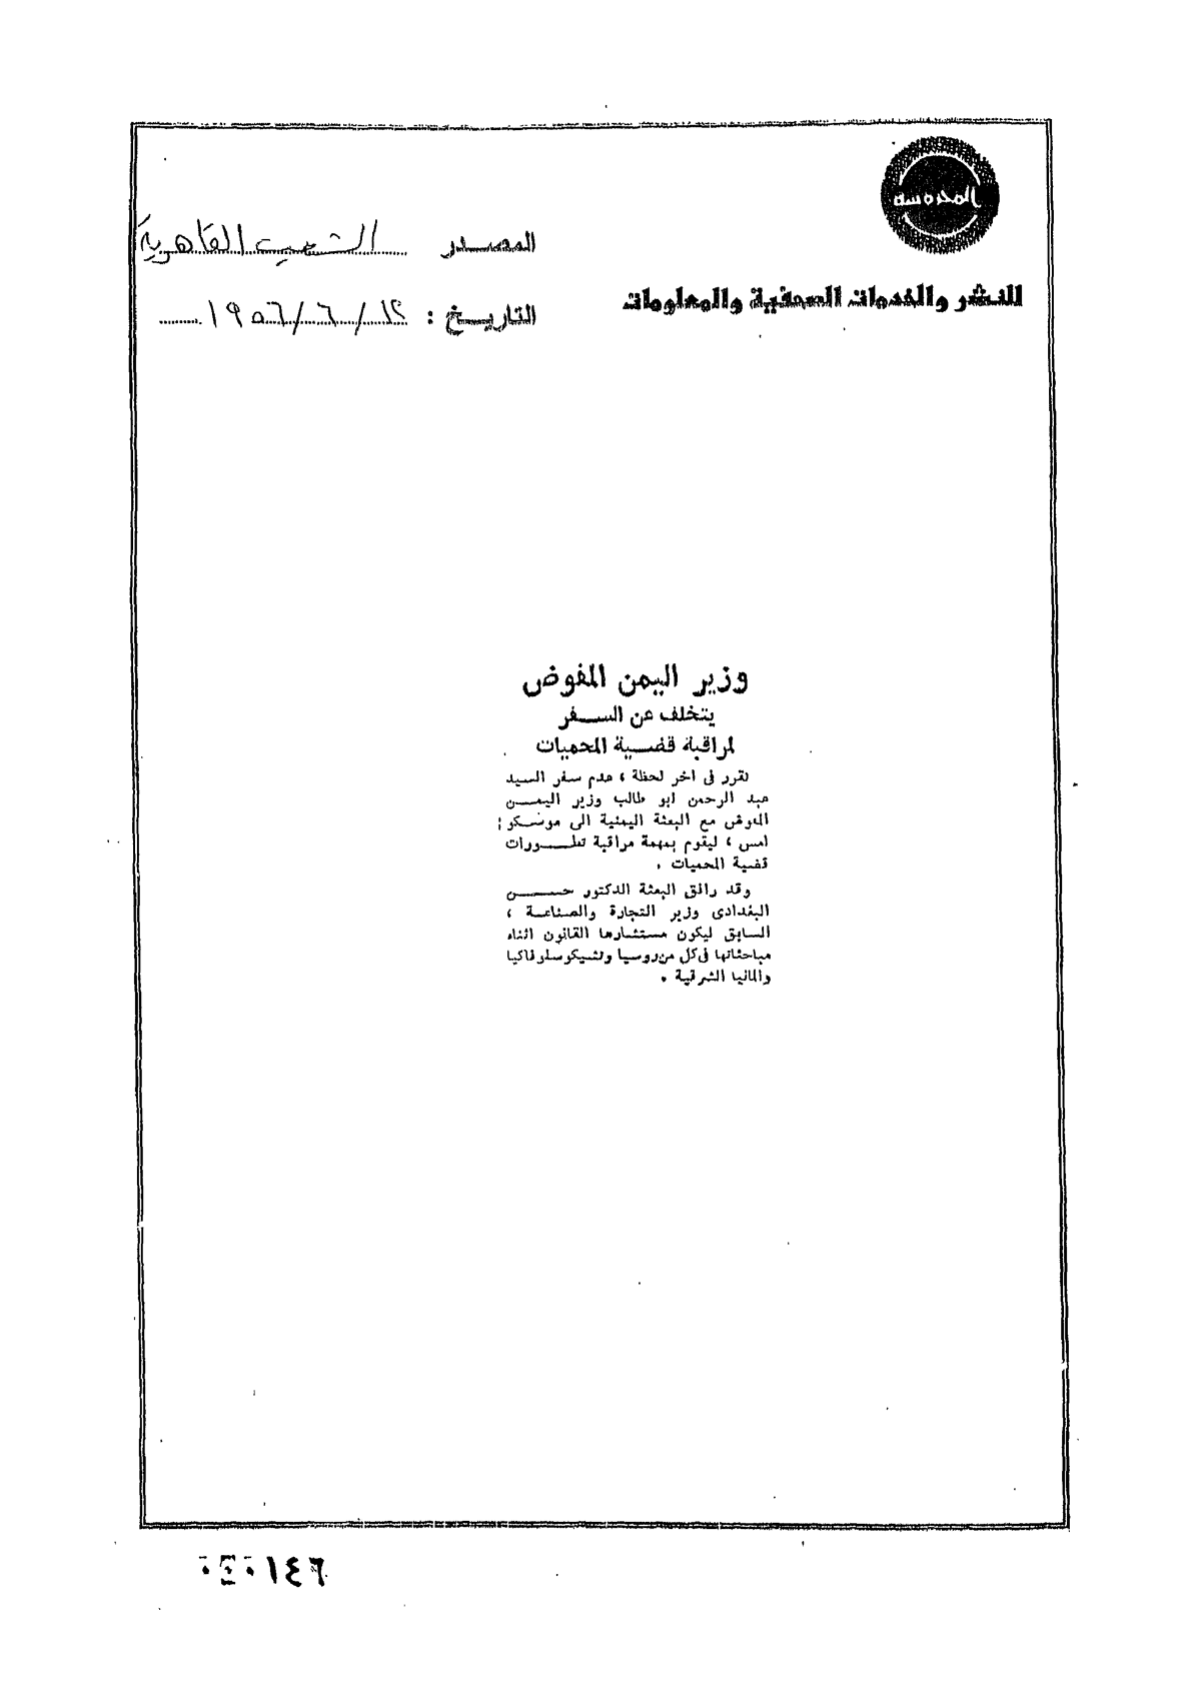 المحروسة
للنشر والخدمات الصحفية والمعلومات
المصدر الشعب القاهرية
التاريخ : ١٢/ ٦ / ١٩٥٦
وزير اليمن المفوض
يتخلف عن السفر
لمراقبة قضية المحميات
تقرر فى اخر لحظة ، عدم سفر السيد
عبد الرحمن ابو طالب وزير اليمن
المفوض مع البعثة اليمنية الى موسكو
امس ، ليقوم بمهمة مراقبة تطورات
قضية المحميات .
وقد رافق البعثة الدكتور حسن
البغدادى وزير التجارة والصناعة ،
السابق ليكون مستشارها القانون اثناء
مباحثاتها فى كل من روسيا وتشيكوسلوفاكيا
والمانيا الشرقية .
١٤٦